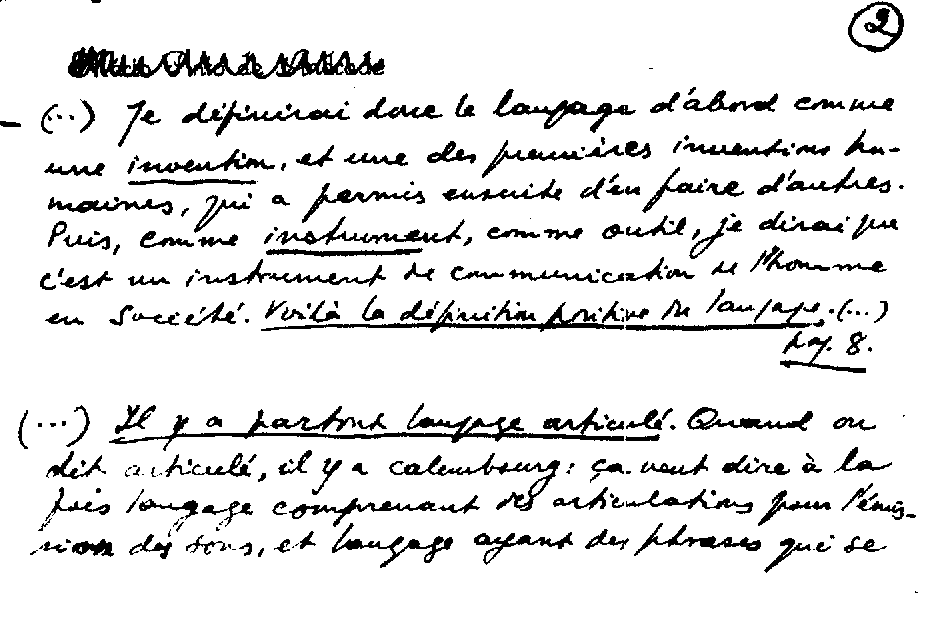 2
(...) Je définirai donc le langage d'abord comme
une invention, et une des premières inventions hu-
maines, qui a permis ensuite d'en faire d'autres.
Puis, comme instrument, comme outil, je dirai que
c'est un instrument de communication de l'homme
en Société. Voilà la définition positive du langage. (...)
pag. 8.
(...) Il y a partout langage articulé. Quand on
dit articulé, il y a calembourg: ça veut dire à la
fois langage comprenant des articulations pour l'émis-
sion des sons, et langage ayant des phrases qui se